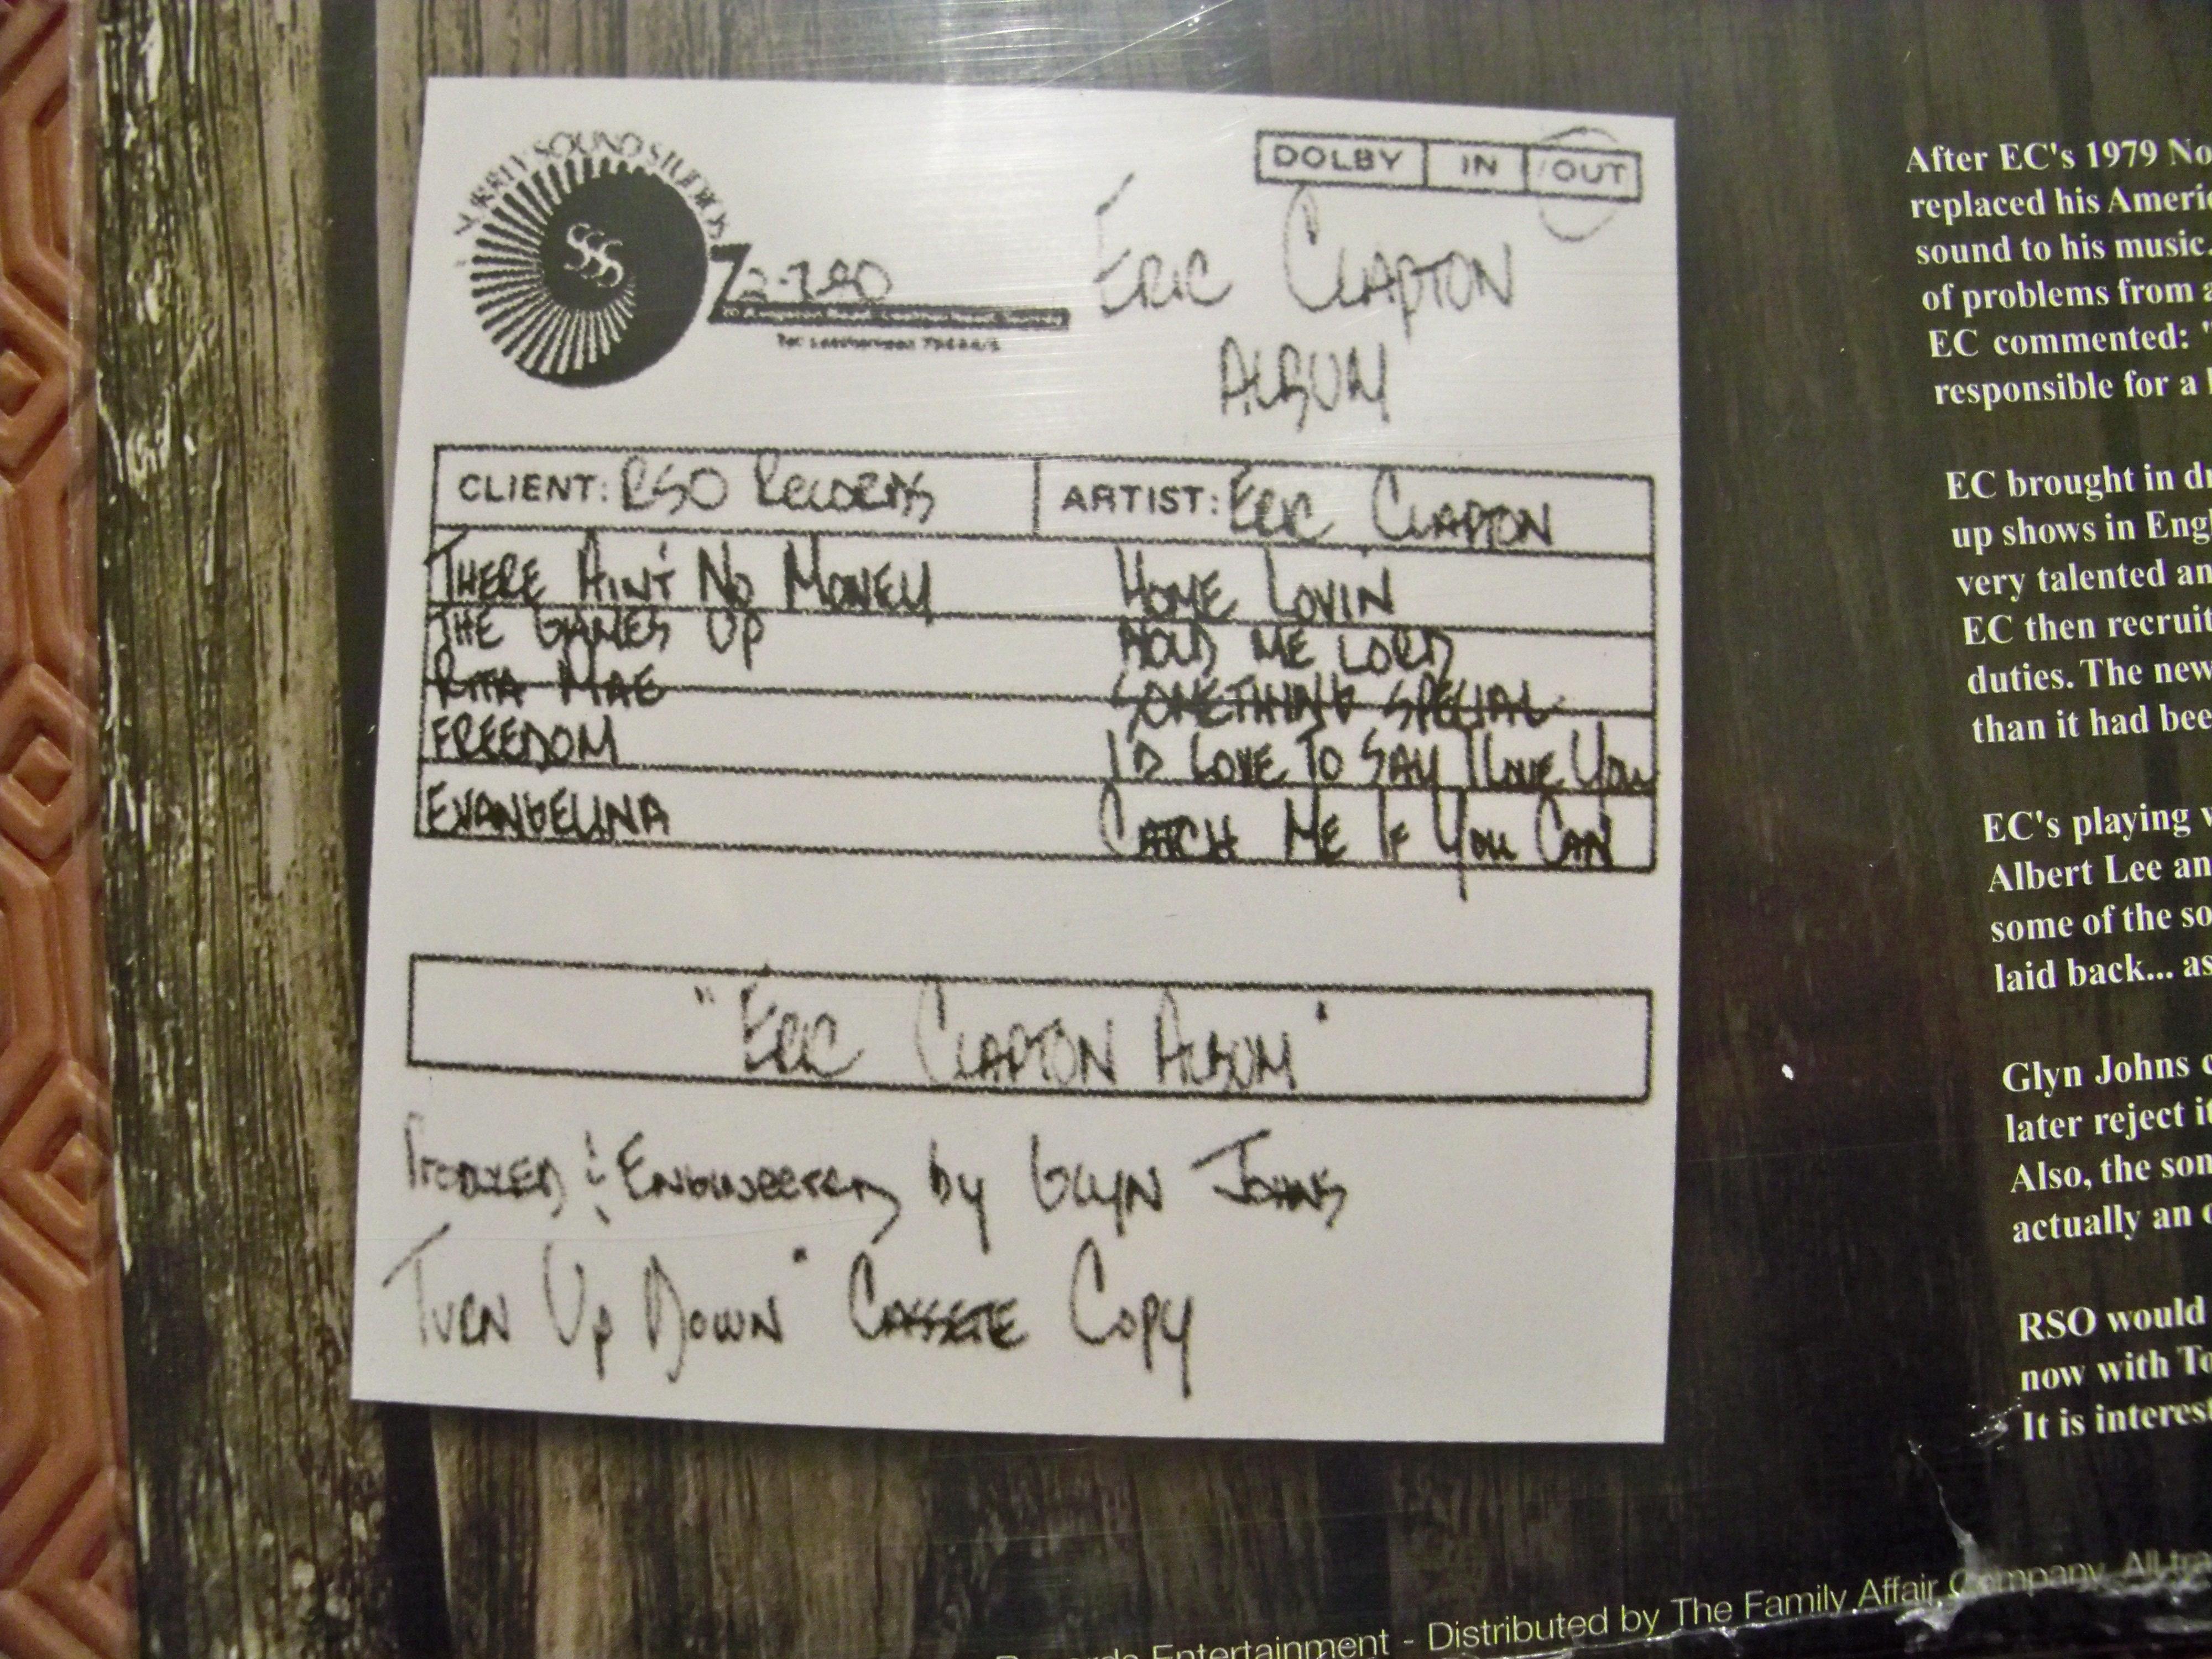 SURREY SOUND STUDIOS
SSS
DOLBY IN OUT
ERIC CLAPTON
ALBUM
CLIENT: RSO RECORDS ARTIST: ERIC CLAPTON
THERE AIN'T NO MONEY HOME LOVIN
THE GAMES UP HOLD ME LORD
RITA MAE SOMETHING SPECIAL
FREEDOM I'D LOVE TO SAY I LOVE YOU
EVANGELINA CATCH ME IF YOU CAN
"ERIC CLAPTON ALBUM"
PRODUCED & ENGINEERED by GLYN JOHNS
TURN UP DOWN" CASSETTE COPY
After EC's 1979 No
replaced his Americ
sound to his music.
of problems from a
EC commented: "
responsible for a
EC brought in dr
up shows in Engl
very talented an
EC then recruit
duties. The new
than it had bee
EC's playing w
Albert Lee an
some of the so
laid back... as
Glyn Johns c
later reject it
Also, the son
actually an o
RSO would
now with To
It is interest
Records Entertainment - Distributed by The Family Affair Company. All tra